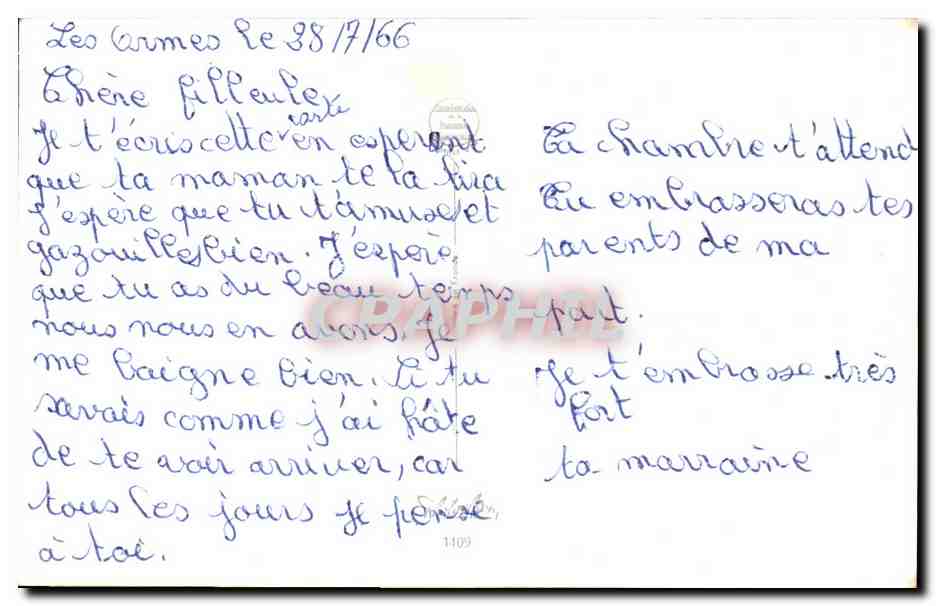 Les Ormes le 28/7/66
Chère filleule
carte
Je t'écris cette en esperent
que ta maman te la lira
J'espère que tu t'amuse et
gazouilles bien. J'espère
que tu as du beau temps
nous nous en avons. Je
me baigne bien. Si tu
savais comme j'ai hâte
de te voir arriver, car
tous les jours je pense
à toi.
1409
Ta chambre t'attend
Tu embrasseras tes
parents de ma
part.
Je t'embrasse très
fort
ta marraine
CPAPHIL